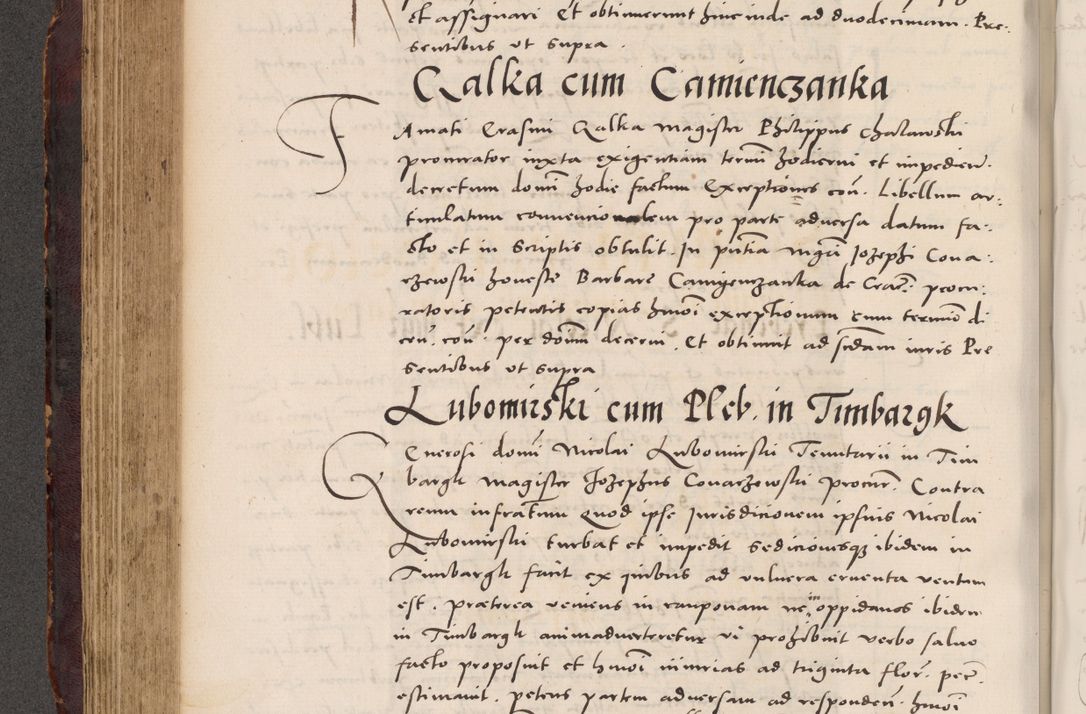 et assignari Et obtinuerunt hincinde ad duodecimam. Pre:
sentibus ut supra.
Ralka cum Camienczanka
Famati Erasmi Ralka magister Philippus Chalawski
procurator iuxta exigentiam termi hodierni et impedien.
decretum domi hodie factum Exceptiones con. Libellum ar:
ticulatum convencionalem pro parte adversa datum fa:
cto et in scriptis obtulit. In pntia mgri Jozephi Cova:
rzewski honeste Barbare Camyenczanka de Crac. procu:
ratoris petentis copias hmoi exceptionum cum termino di
cen. con. per domi decerni. Et obtinuit ad scdam iuris Pre
sentibus ut supra
Lubomirski cum Pleb. in Timbargk
Generosi domi Nicolai Lubomirski Tenutarii in Tim
bargk magister Jozephus Covarzewski procur. Contra
reum infrascriptum Quod ipse Jurisdicionem ipsius Nicolai
Lubomirski turbat et impedit sedicionesq ibidem in
Timbargk facit ex quibus ad vulnera cruenta ventum
est. Præterea veniens in cauponam ne in oppidanos ibidem
in Timbargk animadverteretur vi prohibuit verbo salvo
facto proposuit et hmoi iniurias ad triginta flor. pec.
estimavit. petens partem adversam ad responden. hmoi